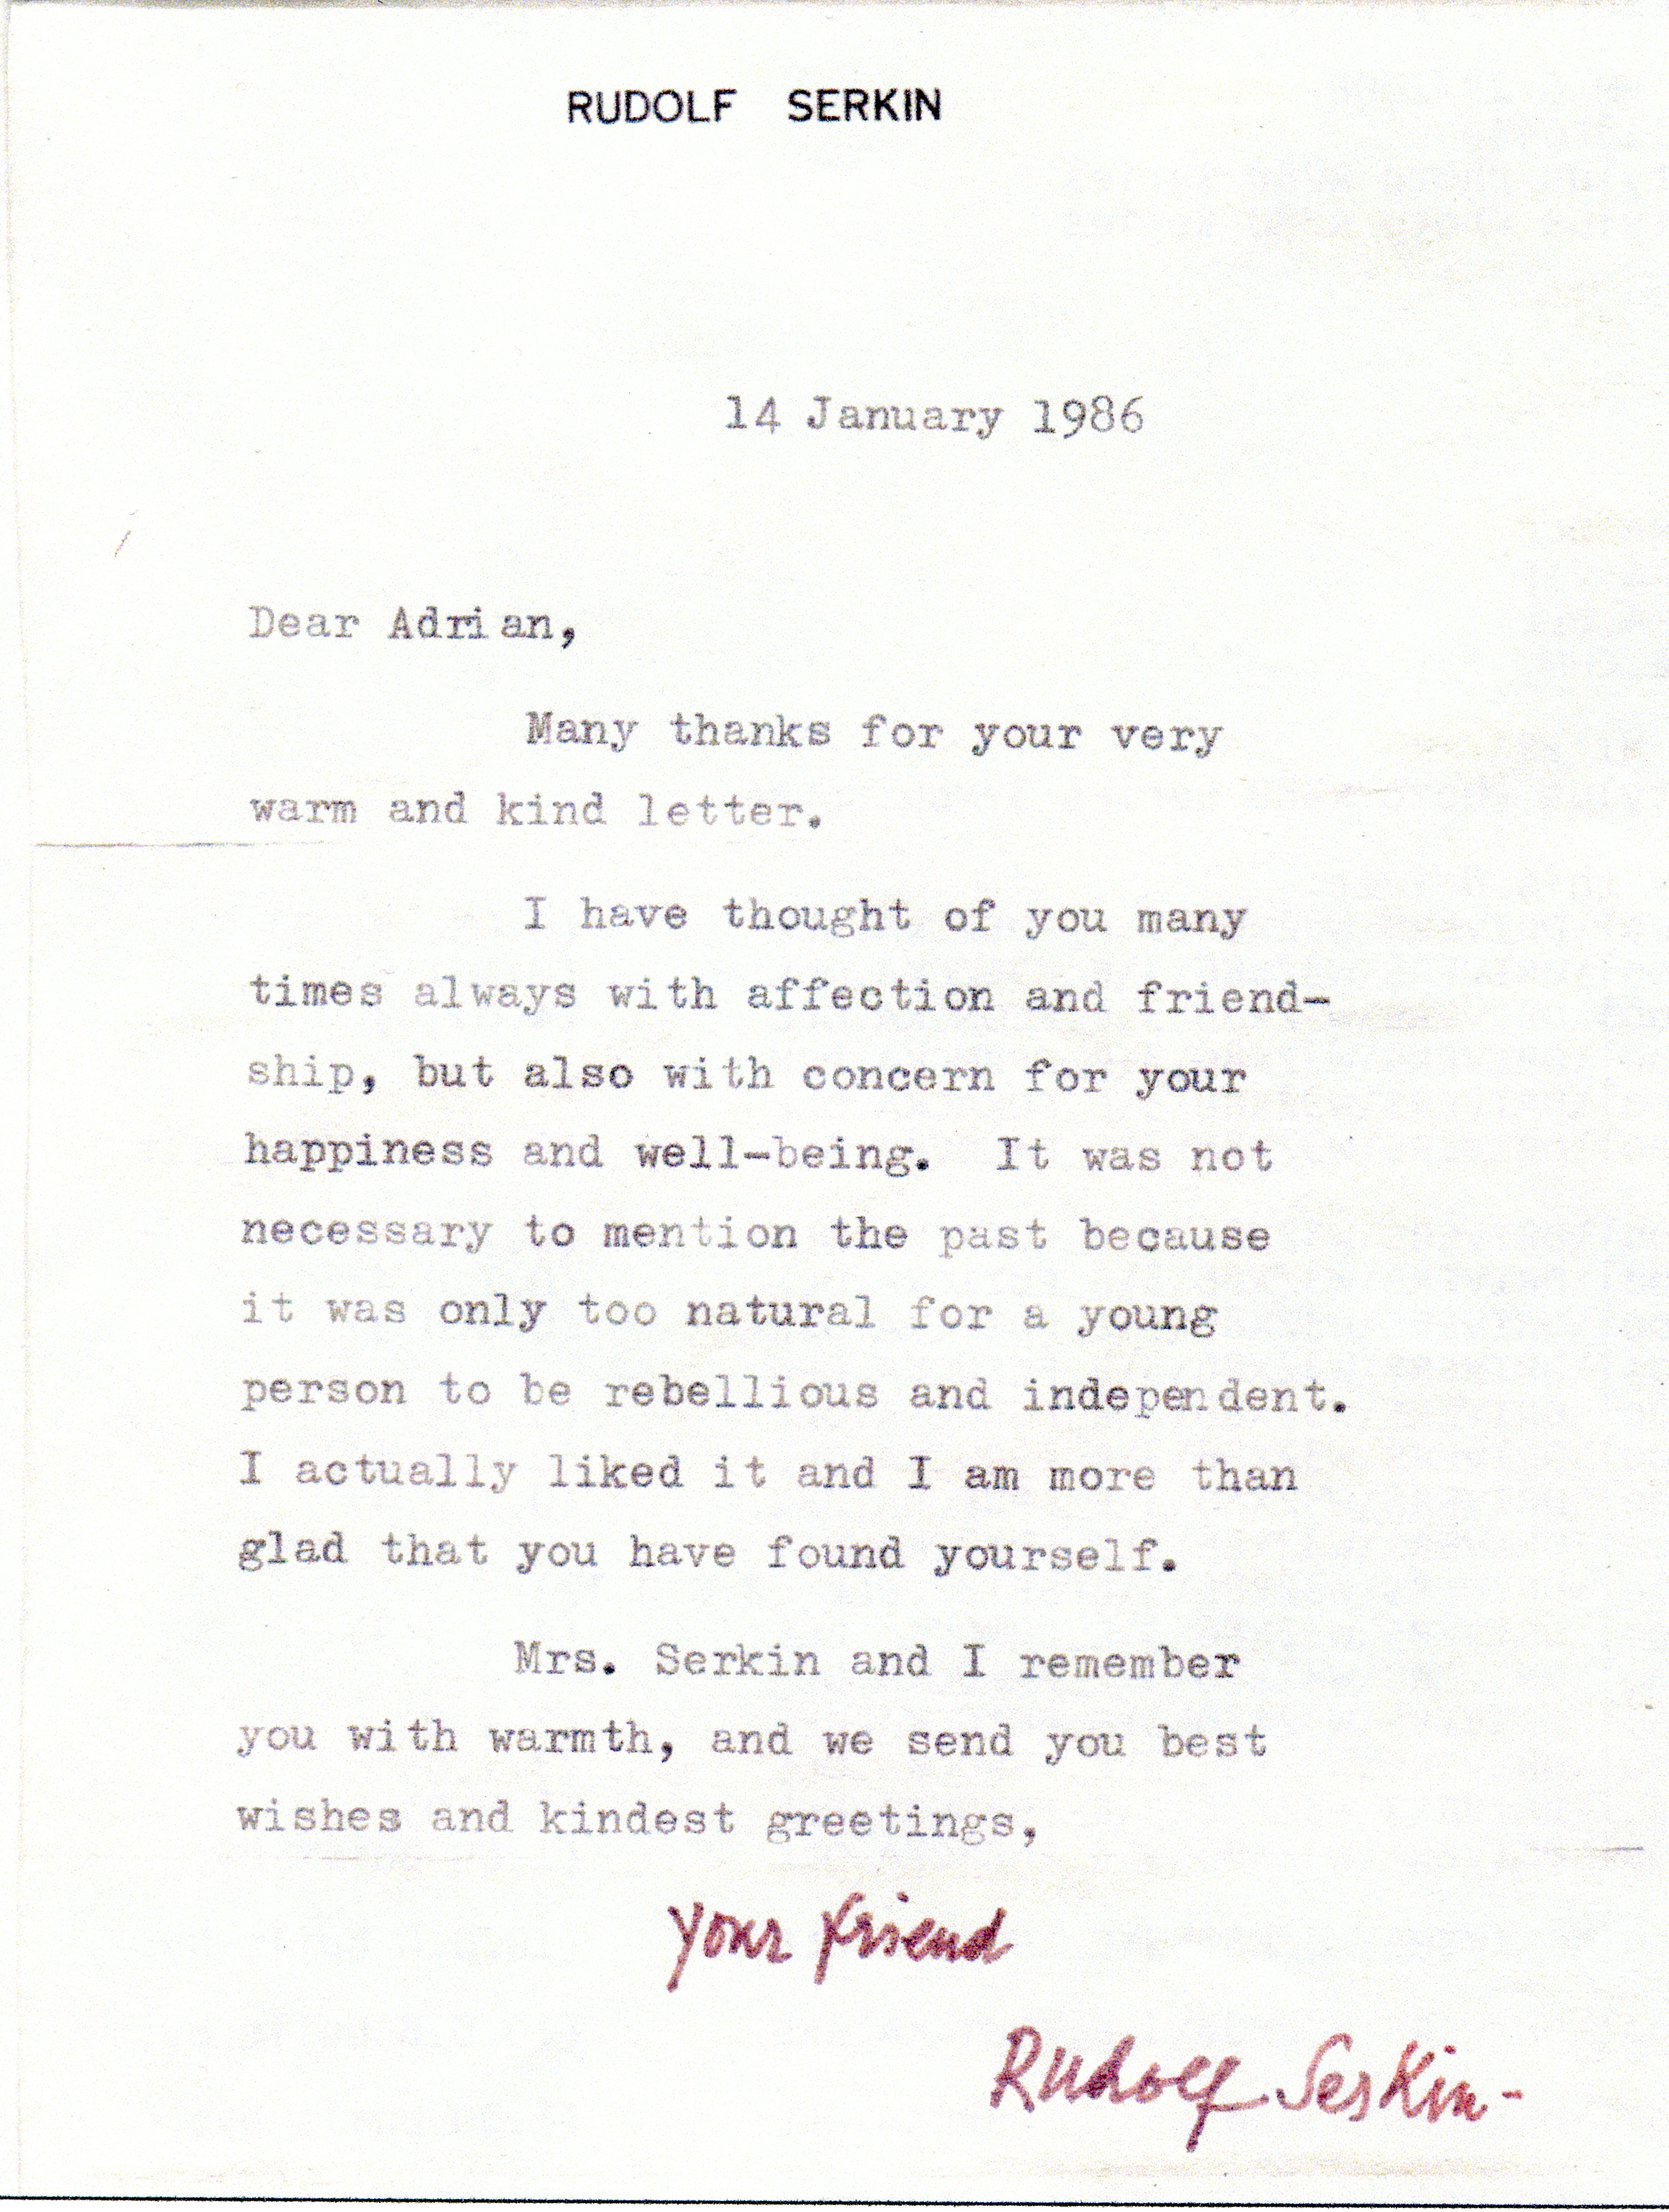 RUDOLF SERKIN
14 January 1986
Dear Adrian,
Many thanks for your very
warm and kind letter.
I have thought of you many
times always with affection and friend-
ship, but also with concern for your
happiness and well-being. It was not
necessary to mention the past because
it was only too natural for a young
person to be rebellious and independent.
I actually liked it and I am more than
glad that you have found yourself.
Mrs. Serkin and I remember
you with warmth, and we send you best
wishes and kindest greetings,
your friend
Rudolf Serkin-